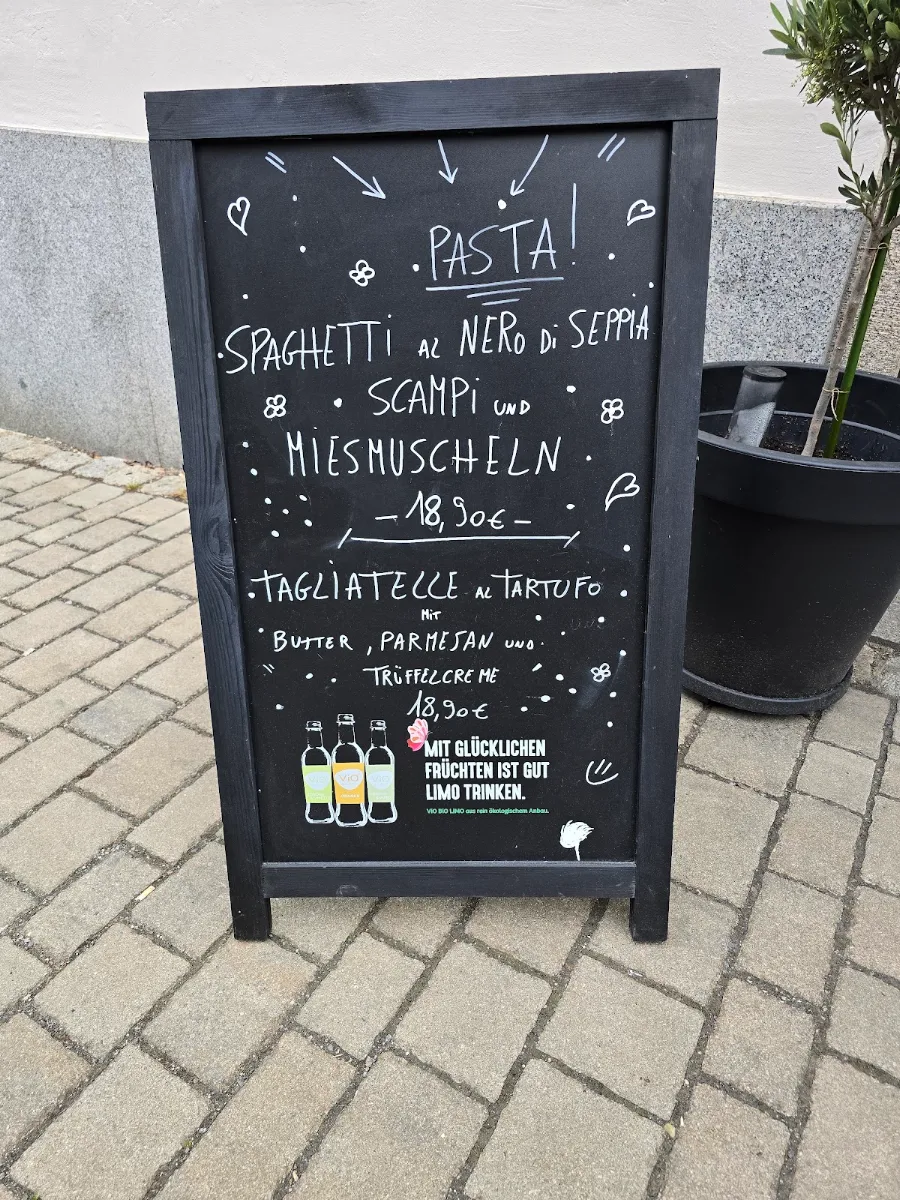 PASTA!
SPAGHETTI AL NERO Di SEPPIA
SCAMPi UND
MIESMUSCHELN
- 18,90€ -
TAGLIATELLE AL TARTUFO
MIT
BUTTER, PARMESAN UND
TRÜFFELCREME
18,90€
ViO ViO ViO
MIT GLÜCKLICHEN
FRÜCHTEN IST GUT
LIMO TRINKEN.
ViO BiO LiMO aus rein ökologischem Anbau.